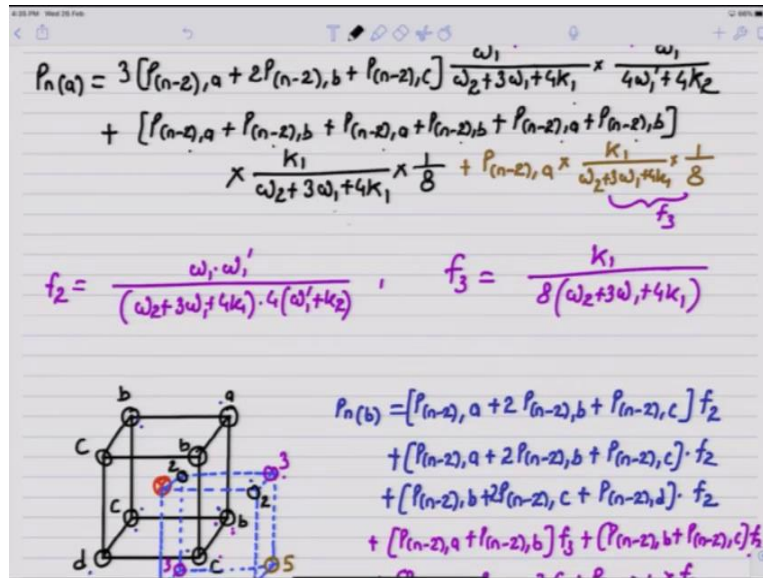 4:35 PM Wed 26 Feb
66%
Pn(a) = 3 [P(n-2),a + 2P(n-2),b + P(n-2),c] ω1/(ω2+3ω1+4k1) × ω1/(4ω1'+4k2)
+ [P(n-2),a + P(n-2),b + P(n-2),a + P(n-2),b + P(n-2),a + P(n-2),b]
× k1/(ω2+3ω1+4k1) × 1/8 + P(n-2),a × k1/(ω2+3ω1+4k1) × 1/8
f3
f2 = ω1·ω1'/((ω2+3ω1+4k1)·4(ω1'+k2)) , f3 = k1/(8(ω2+3ω1+4k1))
b a
Pn(b) = [P(n-2),a + 2P(n-2),b + P(n-2),c] f2
c b
2 3
+ [P(n-2),a + 2P(n-2),b + P(n-2),c]· f2
2
+ [P(n-2),b + 2P(n-2),c + P(n-2),d]· f2
c b
+ [P(n-2),a + P(n-2),b] f3 + (P(n-2),b + P(n-2),c)
d 3 c 5